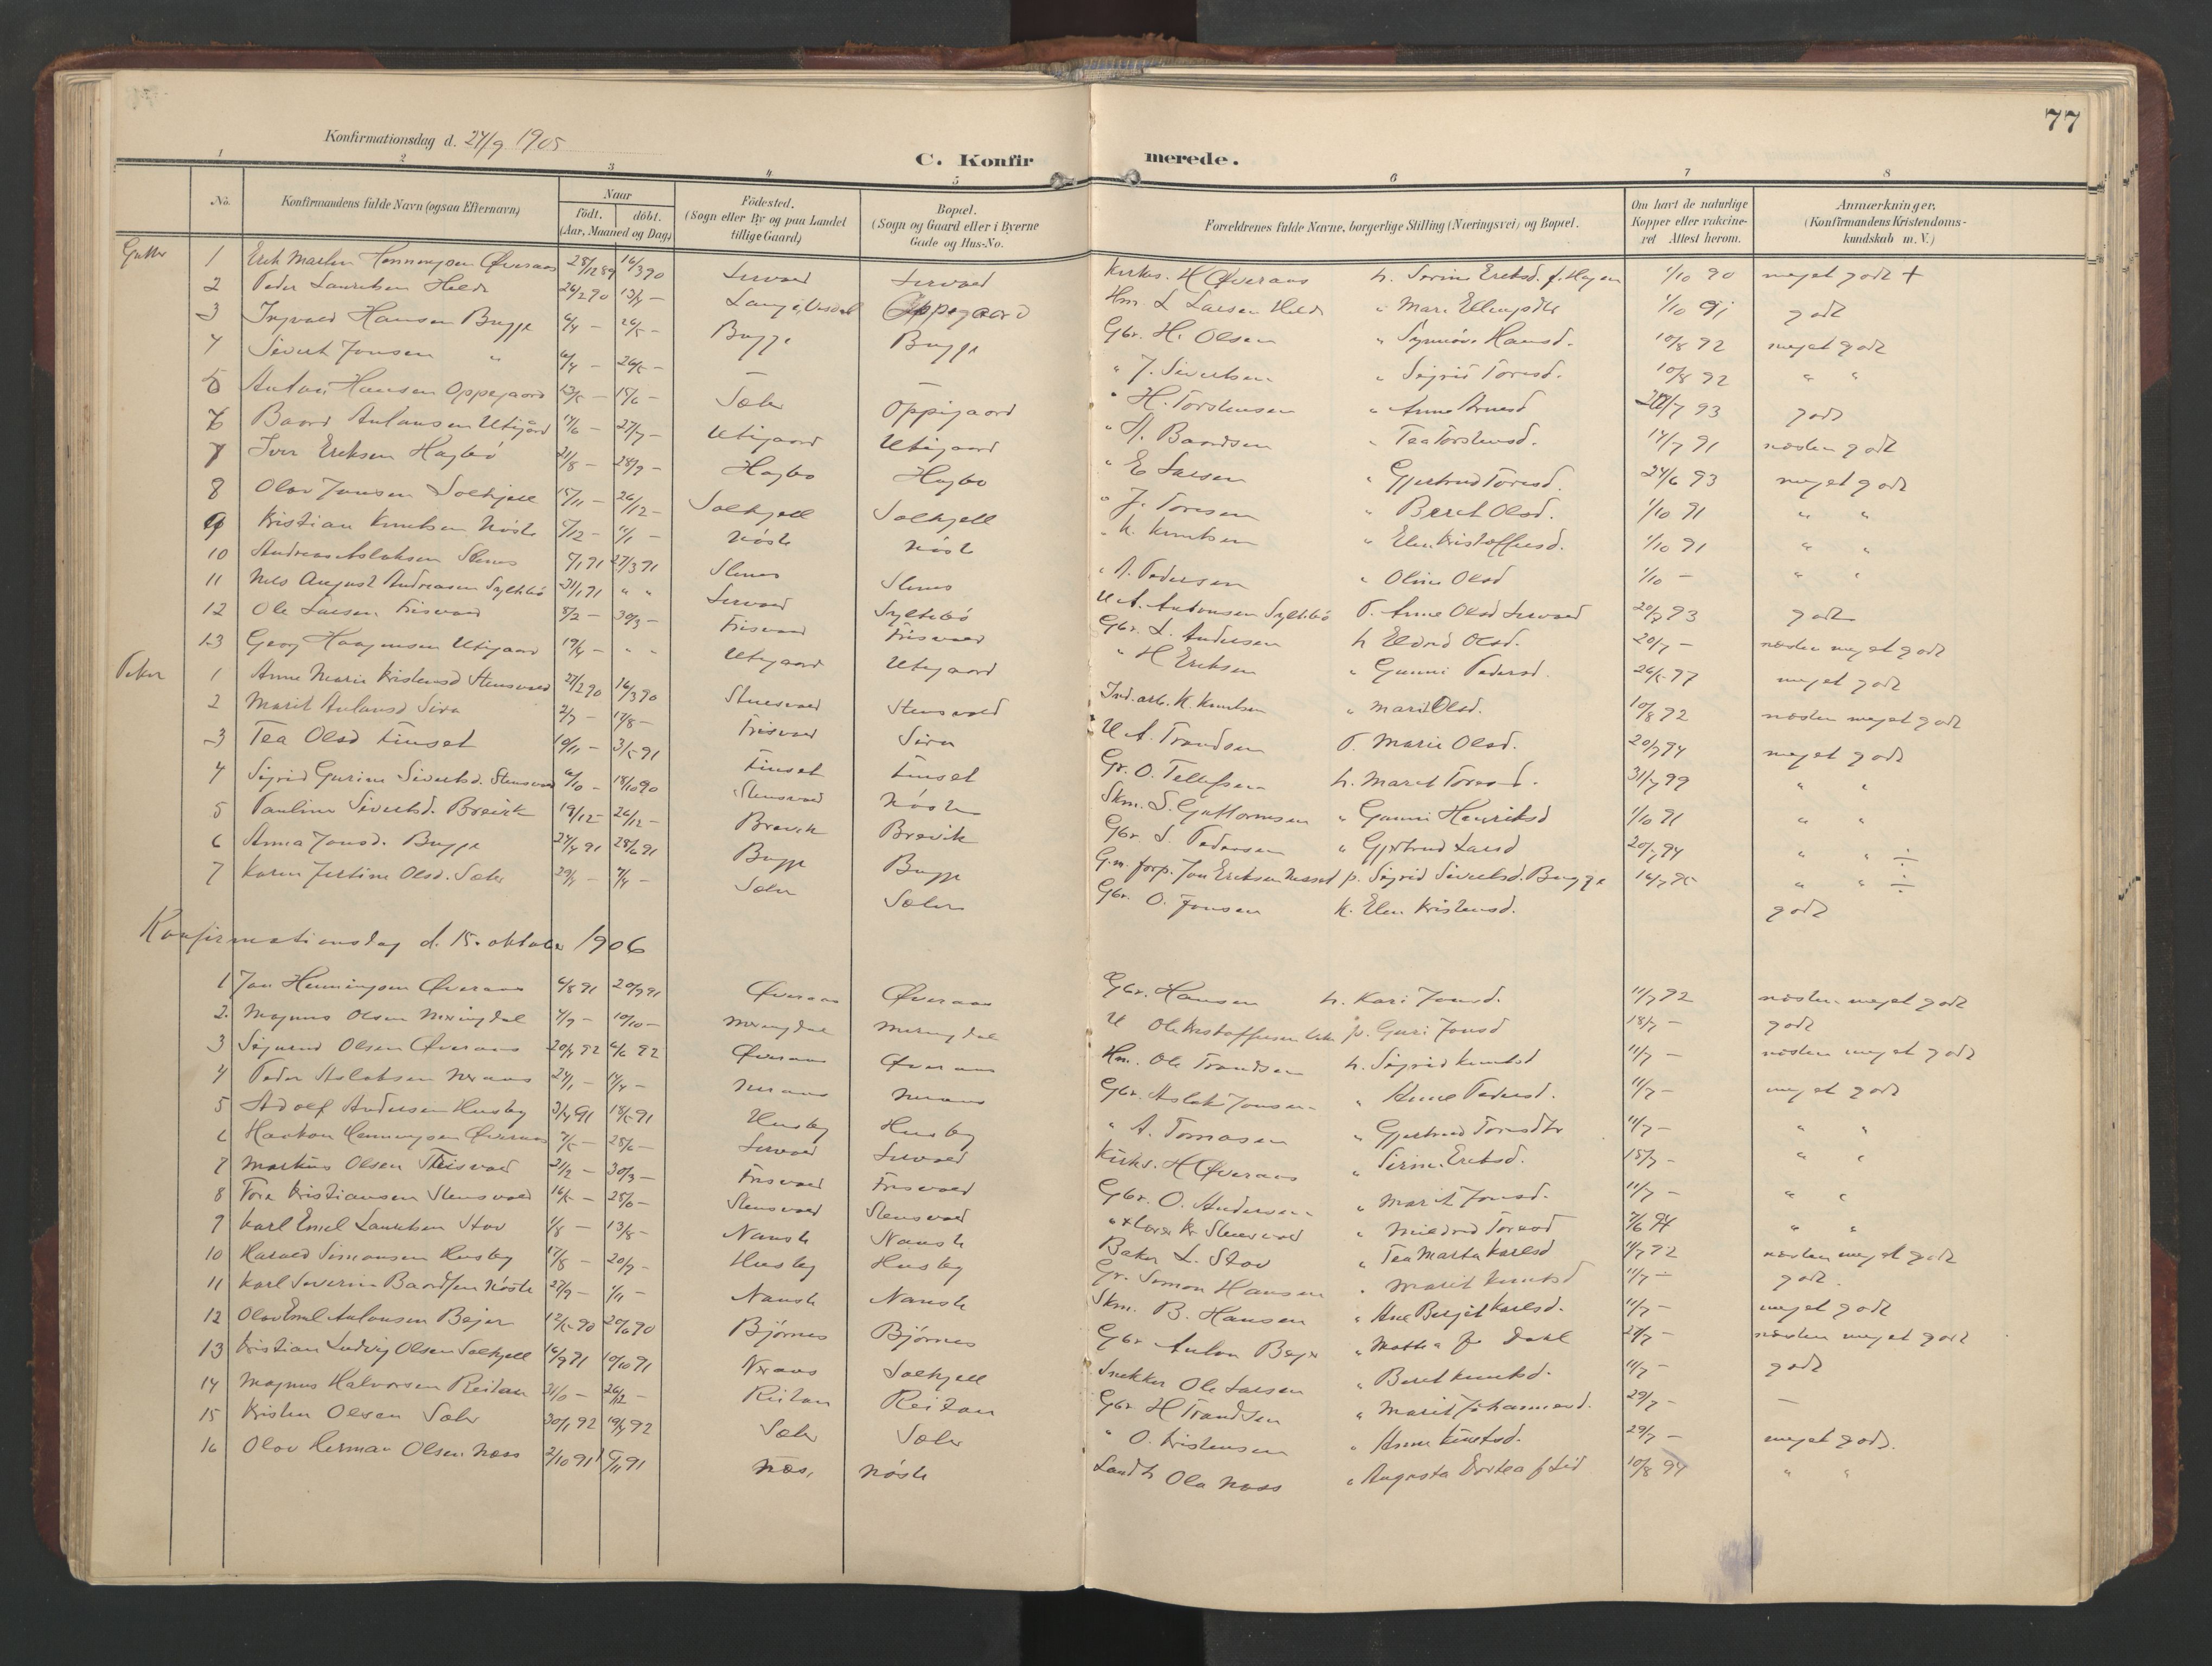 77
Konfirmationsdag d. 24/9 1905
C. Konfirmerede.
1 2 3 4 5 6 7 8
No. Konfirmandens fulde Navn (ogsaa Efternavn) Naar födt. döbt. (Aar, Maaned og Dag) Födested. (Sogn eller By og paa Landet tillige Gaard) Bopæl. (Sogn og Gaard eller i Byerne Gade og Hus-No. Forældrenes fulde Navne, borgerlige Stilling (Næringsvei) og Bopæl. Om havt de naturlige Kopper eller vakcineret Attest herom. Anmærkninger. (Konfirmandens Kristendomskundskab m. V.)
Gutter
1 Erik Martin Henningsen Øveraas 28/12 89 16/3 90 H Øveraas 1/10 90 meget godt +
2 Peder Lauritsen Helde 26/2 90 13/4 — Oppegaard Hm. L Larsen Helde " Mari 1/10 91 godt
3 Ingvald Hansen Bugge 6/4 — 26/5 — Bugge Bugge Gbr. H. Olsen " Synnöve Hansd. 10/8 92 meget godt
4 Sivert Jonsen " 6/4 — 26/5 — — — " J. Sivertsen " Sigrid Toresd. 10/8 92 " "
5 Anton Hansen Oppegaard 23/5 — 15/6 — Sæter Oppigaard " H. Torstensen " Anne Arnesd 93 godt
6 Baard Antonsen Utigård 27/7 — Utigaard Utigaard " A. Baardsen " Tea Torstensd. 14/7 91 næsten godt
7 Iver Eriksen Hagbö 21/8 — 28/9 — Hagbö Hagbö " E Larsen " Gjertrud Toresd. 24/6 93 meget godt
8 Olav Jonsen Solkjell 15/11 — 26/12 — Solkjell Solkjell " J. Toresen " Beret Olsd. 1/10 91 " "
9 Kristian Knutsen Nöste 5/12 — 1/1 — Nöste Nöste " K. Knutsen " Elen Kristoffersd. 1/10 91 " "
10 Andreas Aslaksen Stenes 91 27/3 91 Stenes Stenes " A. Pedersen " Oline Olsd 1/10 — " "
11 Nels August Andreasen Syltebö 31/1 91 " " Syltebö U A. Antonsen Syltebö P. Anne Olsd 20/7 93 godt
12 Ole Larsen Frisvoad 8/2 — 30/3 — Frisvoad Frisvoad Gbr. L. Andersen h Eldrid Olsd. 20/7 — næsten meget godt
13 Georg Haagensen Utigaard 19/4 — " " Utigaard Utigaard " H Eriksen " Gunni Pedersd. 26/5 97 meget godt
1 Anne Marie Kristensd Stensvoad 27/2 90 16/3 90 Stensvoad Stensvoad Ind. arb. K. Knutsen " Marit Olsd. 10/8 92 næsten meget godt
2 Marit Antonsd Sira 2/7 — 17/8 — Frisvoad Sira U A. Trondsen P. Marie Olsd. 20/7 94 meget godt
3 Tea Olsd Finset 10/11 — 3/5 91 Finset Finset Gr. O. Tellefsen h. Maret Toresd. 31/7 99 " "
4 Sigrid Gurine Sivertsd. Stensvoad 6/10 — 18/10 90 Stensvoad Nöste Skm. S. Guttormsen " Gunni Henriksd 1/10 91 " "
5 Pauline Sivertsd. Breivik 19/12 — 26/12 — Brevik Brevik Gbr. S. Pedersen " Gjertrud Larsd 20/7 94 " " ÷
6 Anna Jonsd. Bugge 24/4 91 28/6 91 Bugge Bugge G.m. forp. Jon Eriksen Nesset p. Sigrid Sivertsd. Bugge 14/7 95 " " ÷
7 Karen Jertine Olsd. Sæter 29/1 — Sæter Sæter Gbr. O. Jonsen K. Elen Kristensd. godt
Konfirmationsdag d. 15. oktober 1906
1 Jon Henningsen Øveraas 6/8 91 20/9 91 Øveraas Øveraas Gbr. Hansen h. Kari Jonsd. 11/7 92 næsten meget godt
2. Magnus Olsen Meringdal 4/9 — 10/10 — Meringdal Meringdal U Ole Kristoffersen p. Guri Jonsd 18/7 — godt
3 Sigurd Olsen Øveraas 92 6/6 92 Øveraas Øveraas Hm. Ole Trondsen h. Sigrid Knutsd 11/7 — næsten meget godt
4 Peder Aslaksen Neraas 24/1 — 14/4 — Neraas Neraas Gbr. Aslak Jonsen " Anne Pedersd. 11/7 — meget godt
5 Adolf Andersen Husby 3/4 91 18/5 91 Husby Husby " A. Tomasen " Gjertrud Toresdtr 11/7 — " "
6 Haakon Henningsen Øveraas 7/5 — 28/6 — H Øveraas " Eriksd. 18/7 — " "
7 Martinus Olsen Frisvoad 21/2 — 30/3 — Frisvoad Frisvoad Gbr. O. Andersen " Marit Jonsd. 11/7 — " "
8 Tore Kristiansen Stensvoad 16/5 — Stensvoad Stensvoad " Mildrid Toresd 7/6 94 " "
9 Karl Emil Lauritsen Stov 1/8 — 13/8 — Nauste Nauste Baker L. Stov " Tea Marta Karlsd 11/7 92 næsten meget godt
10 Harald Simonsen Husby 17/8 — 20/9 — Husby Husby Gr. Simon Hansen " Marit Knutsd 11/7 — godt.
11 Karl Severin Baardsen Nöste 27/9 — 1/11 — Nauste Nauste Skm. B. Hansen " Ane Berjit Karlsd. 11/7 — meget godt
12 Olav Emil Antonsen Bejer 12/5 90 90 Björnes Björnes Gbr Anton Bejer " Mattea Dahl 27/7 — næsten meget godt
13 Kristian Ludvig Olsen Solkjell 16/9 91 10/10 91 Neraas Solkjell Snekker Ole Larsen " Beret Knutsd. 11/7 — godt
14 Magnus Halvorsen Reitan — 26/12 — Reitan Reitan Gbr H Trondsen " Marit Johannesd. 29/7 — —
15 Kristen Olsen Sæter 30/1 92 19/4 92 Sæter Sæter " O. Kristensen " Anne Knutsd. 29/7 — meget godt.
16 Olav Herman Olsen Næss 2/10 91 91 Næs, Nöste Landh Ola Næss " Augusta Dortea f Lid 10/8 94 " "